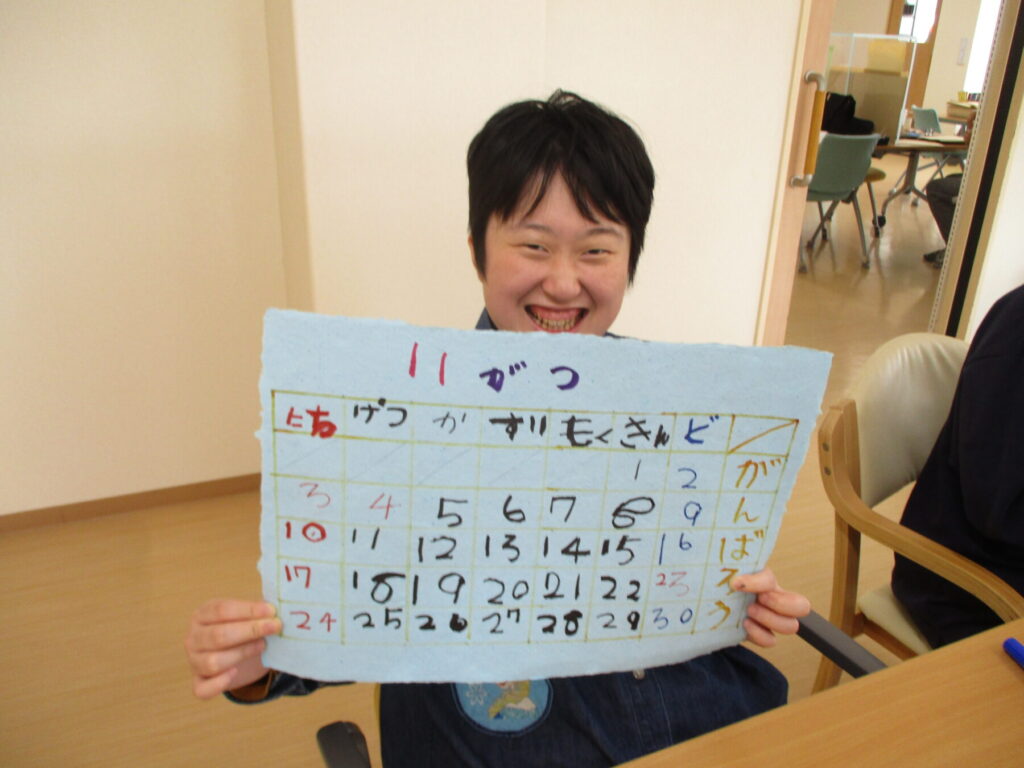 11 がつ
にち げつ か すい もく きん ど
1 2 が
3 4 5 6 7 8 9 ん
10 11 12 13 14 15 16 ば
17 18 19 20 21 22 23 ろ
24 25 26 27 28 29 30 う